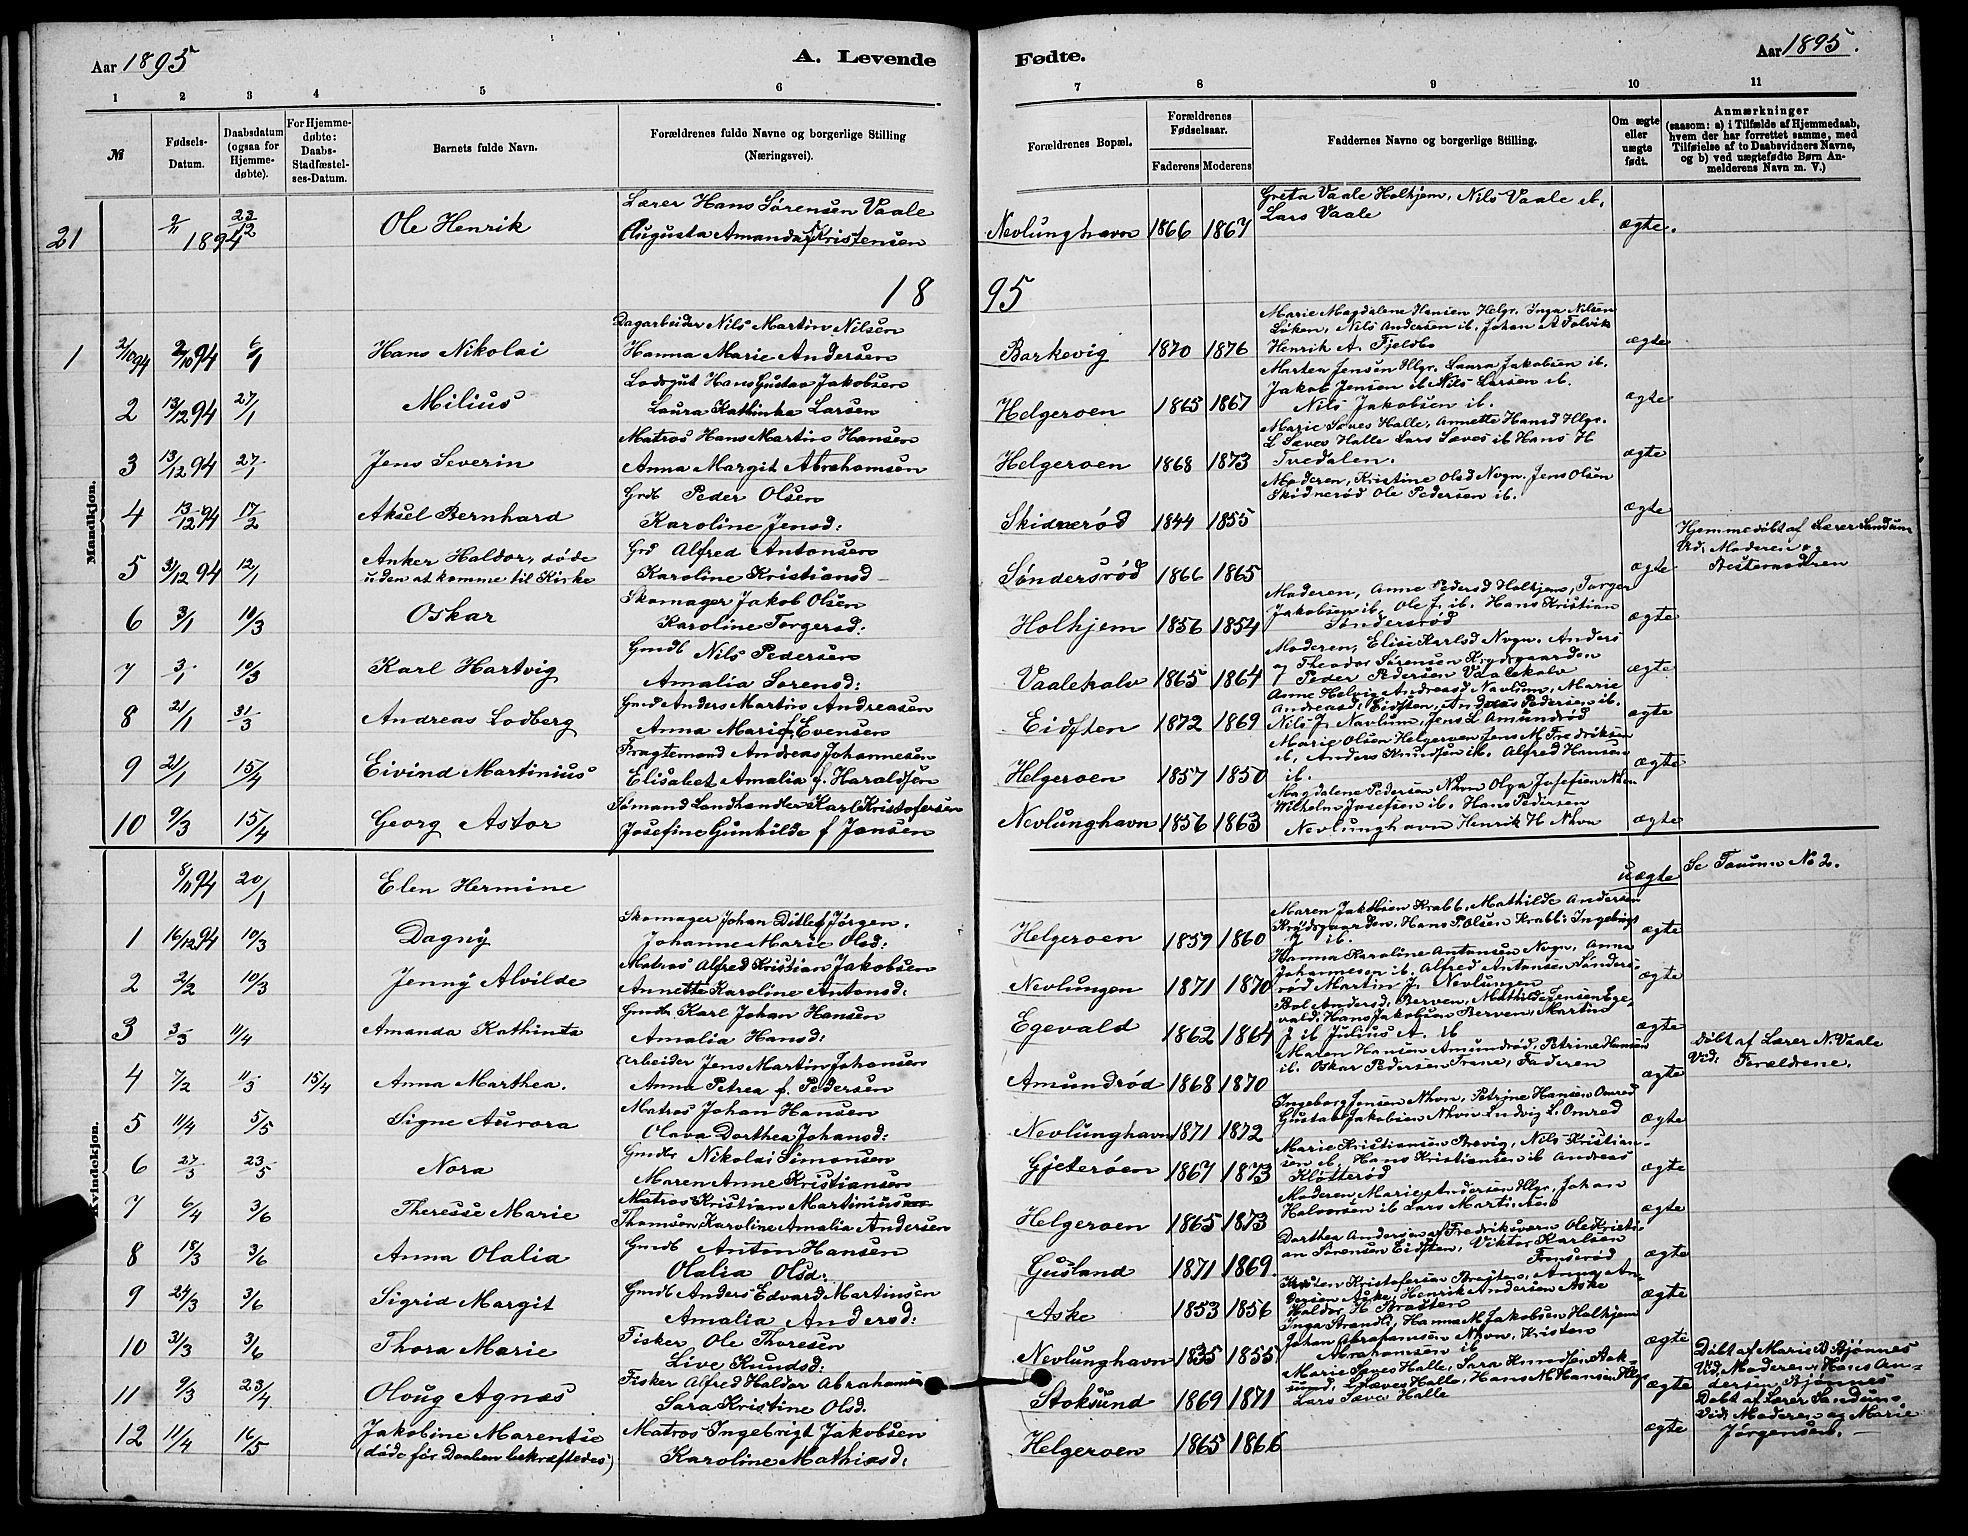 Aar 1895
A. Levende
Fødte.
Aar 1895.
1 2 3 4 5 6 7 8 9 10 11
№
Fødsels-
Datum.
Daabsdatum
(ogsaa for
Hjemme-
døbte).
For Hjemme-
døbte:
Daabs-
Stadfæstel-
ses-Datum.
Barnets fulde Navn.
Forældrenes fulde Navne og borgerlige Stilling
(Næringsvei).
Forældrenes Bopæl.
Forældrenes
Fødselsaar.
Faderens Moderens
Faddernes Navne og borgerlige Stilling.
Om ægte
eller
uægte
født.
Anmærkninger
(saasom: a) i Tilfælde af Hjemmedaab,
hvem der har forrettet samme, med
Tilføielse af to Daabsvidners Navne,
og b) ved uægtefødte Børn An-
melderens Navn m. V.)
Mandkjøn.
21 1894 23/12 Ole Henrik
Lærer Hans Sørensen Vaale
Augusta Amanda f Kristensen
Nevlunghavn 1866 1867
Greta Vaale Holhjem, Nils Vaale ib,
Lars Vaale
ægte.
18 95
1 2/10 94 2/10 94 6/1 Hans Nikolai
Dagarbeider Nils Martin Nilsen
Hanna Marie Andersen
Barkevig 1870 1876
Marie Magdalene Hansen Helgr. Inga Nilsen
Løken, Nils Andersen ib. Johan A Tolvik
Henrik A. Fjeldbo
ægte
2 13/12 94 27/1 Milius
Lodsgut Hans Gustav Jakobsen
Laura Kathinka Larsen
Helgeroen 1865 1867
Martea Jensen Hlgr. Laura Jakobsen ib.
Jakob Jensen ib Nils Larsen ib.
Nils Jakobsen ib.
ægte
3 13/12 94 27/1 Jens Severin
Matros Hans Martin Hansen
Anna Margit Abrahamsen
Helgeroen 1868 1873
Marie Saves Halle, Annette Hansd Hlgr.
L Saves Halle Lars Saves ib Hans H
Tvedalen.
ægte
4 13/12 94 17/2 Aksel Bernhard
Grdb Peder Olsen
Karoline Jensd:
Skidnerød 1844 1855
Moderen, Kristine Olsd Nvgn. Jens Olsen
Skidnerød Ole Pedersen ib.
ægte
5 31/12 94 12/1 Anker Haldor, døde
uden at komme til Kirke
Grd Alfred Antonsen
Karoline Kristiansd
Søndersrød 1866 1865
ægte
Hjemmedøbt af Lærer Sandum
Vid. Moderen og
Bestemoderen
6 3/1 10/3 Oskar
Skomager Jakob Olsen
Karoline Torgersd:
Holhjem 1856 1854
Moderen, Anne Pedersd Holhjem, Torger
Jakobsen ib. Ole J. ib. Hans Kristian
Søndersrød
ægte
7 3/1 10/3 Karl Hartvig
Gmdb Nils Pedersen
Amalia Sørensd:
Vaalekalv 1865 1864
Moderen, Elise Karlsd Nvgn. Anders
og Theodor Sørensen Krydsgaarden
Peder Pedersen Vaalekalv
ægte
8 21/1 31/3 Andreas Lodberg
Gmd Anders Martin Andreasen
Anna Marie f Evensen
Eidsten 1872 1869
Anne Helvig Andreasd Navlum, Marie
Andreasd: Eidsten, Andreas Pedersen ib.
Nils J. Navlum, Jens L Amundrød
ægte
9 21/1 15/4 Eivind Martinius
Fragtemand Andreas Johannesen
Elisabet Amalia f. Haraldsen
Helgeroen 1857 1850
Marie Olsen Helgeroen Jens M. Fredriksen
ib, Anders Knudsen ib. Alfred Hansen
ib.
ægte
10 9/3 15/4 Georg Astor
Sømand Landhandler Karl Kristofersen
Josefine Gunhilde f Jansen
Nevlunghavn 1856 1863
Magdalene Pedersen Nhvn Olga Josefsen Nhvn
Wilhelm Josefsen ib. Hans Pedersen
Nevlunghavn Henrik H Nhvn
ægte
Kvindekjøn.
8/11 94 20/1 Elen Hermine
uægte
Se Tanum No 2.
1 16/12 94 10/3 Dagny
Skomager Johan Ditlef Jørgen.
Johanne Marie Olsd:
Helgeroen 1859 1860
Maren Jakobsen Krabb. Mathilde Andersen
Krydsgaarden, Hans P. Olsen Krabb. Ingebrigt
J ib.
ægte
2 2/2 10/3 Jenny Alvilde
Matros Alfred Kristian Jakobsen
Annette Karoline Antonsd:
Nevlungen 1871 1870
Hanna Karoline Antonsen Nvgn. Anna
Johannesen ib. Alfred Antonsen Sønders-
rød Martin J. Nevlungen
ægte
3 3/3 11/4 Amanda Kathinta
Gmdb Karl Johan Hansen
Amalia Hansd:
Egevald 1862 1864
Bol. Andersd: Berven, Mathilde Jensen Ege-
vald. Hans Jakobsen Berven, Martin
J ib Julius A. ib
ægte
4 7/2 11/3 15/4 Anna Marthea.
Arbeider Jens Martin Johansen
Anna Petrea f. Pedersen
Amundrød 1868 1870
Maren Hansen Amundrød, Petrine Hansen
ib. Oskar Pedersen Frene, Faderen
ægte
Døbt af Lærer N. Vaale
Vid: Forældrene.
5 11/4 5/5 Signe Aurora
Matros Johan Hansen
Olava Dorthea Johansd:
Nevlunghavn 1871 1872
Ingeborg Jensen Nhvn, Petrine Hansen Omred
Gustav Jakobsen Nhvn Ludvig L. Omred
ægte
6 27/3 23/5 Nora
Gmdb Nikolai Simonsen
Maren Anne Kristiansen
Gjeterøen 1867 1873
Marie Kristiansen Brevig, Nils Kristian-
sen ib. Hans Kristiansen ib Andreas
Kløtterød
ægte
7 6/4 3/6 Theresse Marie
Matros Kristian Martinius
Thomsen Karoline Amalia Andersen
Helgeroen 1865 1873
Moderen, Marie Andersen Hlgr. Johan
Halvorsen ib Lars Martin A. ib
ægte
8 18/3 3/6 Anna Olalia
Gmdb Anton Hansen
Olalia Olsd:
Gusland 1871 1869
Dorthea Andersen af Fredriksværn Ole Kristi-
an Sørensen Eidsten, Viktor Karlsen
ægte
9 24/3 3/6 Sigrid Margit
Gmdb Anders Edvard Martinsen
Amalia Andersd:
Aske 1853 1856
Kristen Kristofersen Brejten, Anna An-
dersen Aske, Henrik Andersen Aske
Haldor H. Brejten
ægte
10 31/3 3/6 Thora Marie
Fisker Ole Thoresen
Live Knudsd:
Nevlunghavn 1835 1855
Inga Strandli, Hanna M. Jakobsen Holhjem
Johan Abrahamsen Nhvn, Kristen
Abrahamsen ib
ægte
11 9/3 23/4 Oloug Agnæs
Fisker Alfred Haldor Abrahamsen
Sara Kristine Olsd.
Stoksund 1869 1871
Marie Saves Halle, Sara Knudsen Stok-
sund, L Saves Halle, Hans M Hansen Hlgr
Lars Saves Halle
ægte
Døbt af Marie D Bjønnes
Vid. Moderen, Hans An-
dersen Bjønnes
12 11/4 16/5 Jakobine Marentse
(døde før Daaben bekræftedes)
Matros Ingebrigt Jakobsen
Karoline Mathiasd:
Helgeroen 1865 1866
ægte
Døbt af Lærer Sandum
Vid; Moderen og Marie
Jørgensen.